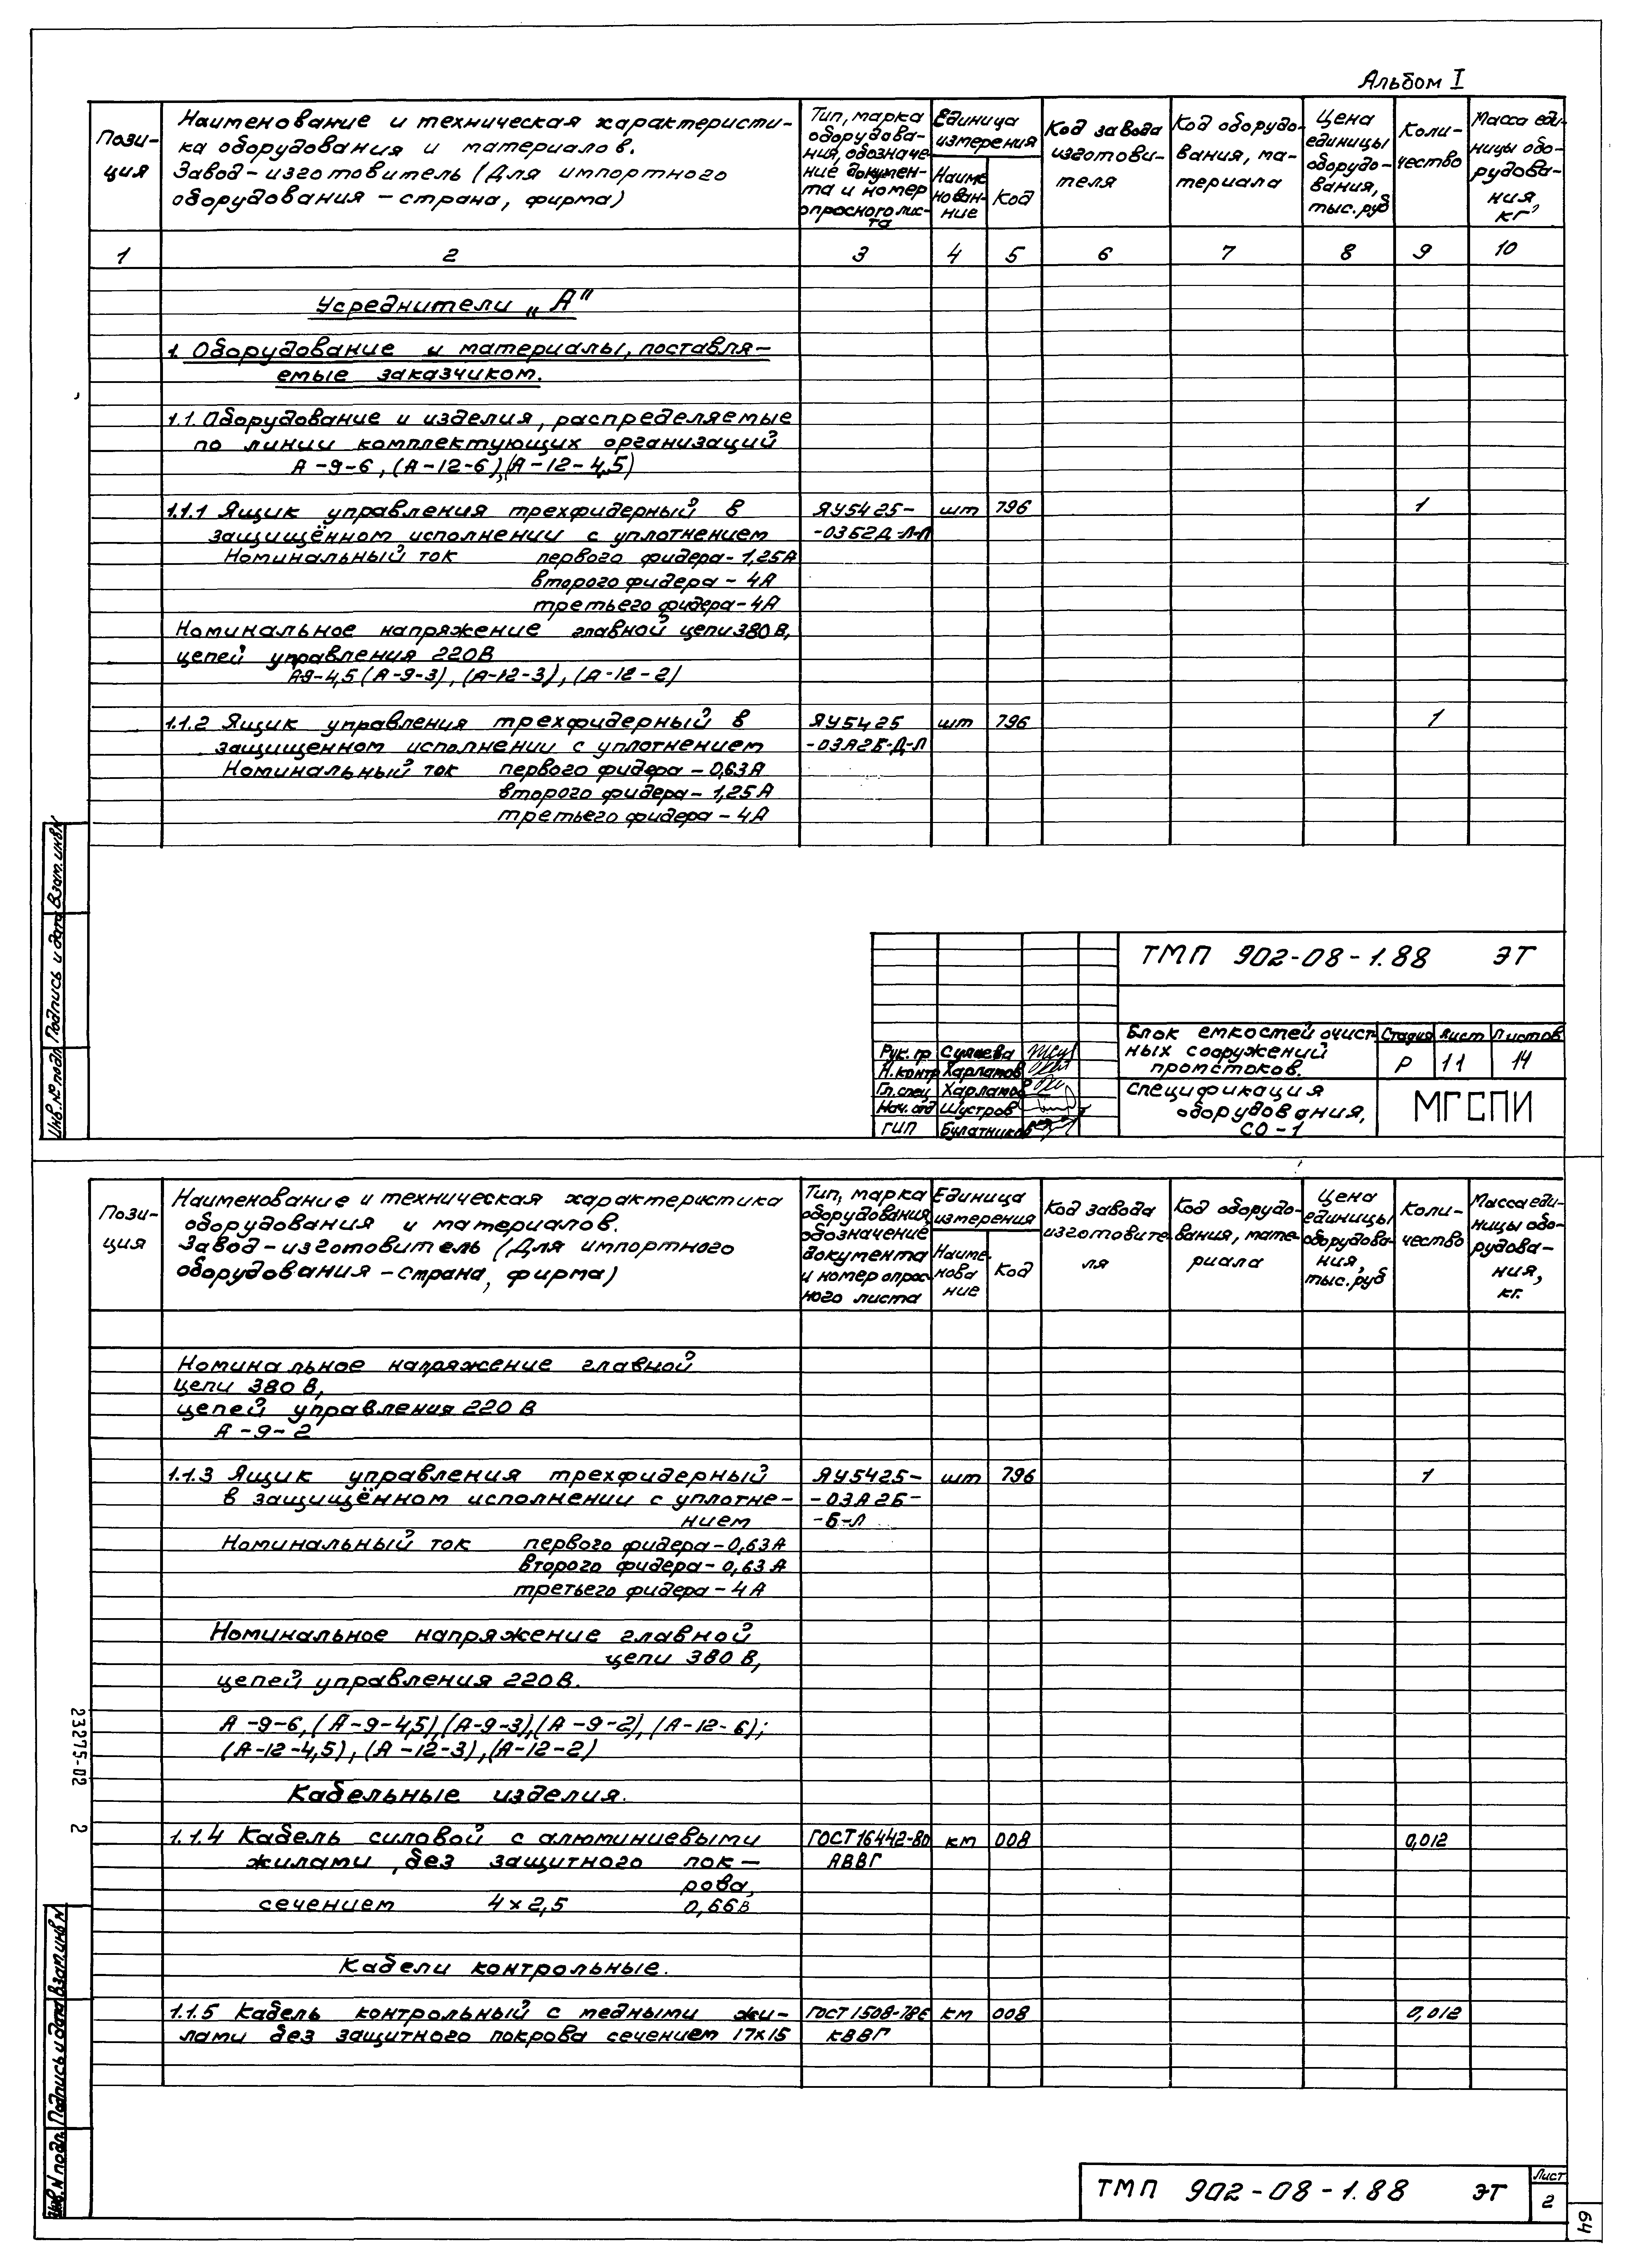 Альбом I
Пози-
ция
Наименование и техническая характеристи-
ка оборудования и материалов.
Завод-изготовитель (Для импортного
оборудования - страна, фирма)
Тип, марка
оборудова-
ния, обозначе
ние докумен-
та и номер
опросного лис-
та
Единица
измерения
Наиме
нован-
ние
Код
Код завода
изготови-
теля
Код оборудо-
вания, ма-
териала
Цена
единицы
оборудо-
вания,
тыс. руб
Коли-
чество
Масса еди-
ницы обо-
рудова-
ния,
кг
1 2 3 4 5 6 7 8 9 10
Усреднители „А"
1. Оборудование и материалы, поставля-
емые заказчиком.
1.1. Оборудование и изделия, распределяемые
по линии комплектующих организаций
А-9-6, (А-12-6), (А-12-4,5)
1.1.1 Ящик управления трехфидерный в ЯУ5425- шт 796 1
защищённом исполнении с уплотнением -03Б2Д-Л-Л
Номинальный ток первого фидера - 1,25А
второго фидера - 4А
третьего фидера - 4А
Номинальное напряжение главной цепи 380 В,
цепей управления 220В
А9-4,5 (А-9-3), (А-12-3), (А-12-2)
1.1.2 Ящик управления трехфидерный в ЯУ5425 шт 796 1
защищенном исполнении с уплотнением -03А2Б-Д-Л
Номинальный ток первого фидера - 0,63А
второго фидера - 1,25 А
третьего фидера - 4А
Инв. № подл Подпись и дата Взам. инв N
ТМП 902-08-1.88 ЭТ
Рук. гр Суляева
Н. контр Харламов
Гл. спец Харламов
Нач. отд Шустров
ГИП Булатников
Блок емкостей очист-
ных сооружений
промстоков.
Стадия Лист Листов
Р 11 14
Спецификация
оборудования,
СО-1
МГСПИ
Пози-
ция
Наименование и техническая характеристика
оборудования и материалов.
Завод-изготовитель (Для импортного
оборудования - страна, фирма)
Тип, марка
оборудования,
обозначение
документа
и номер опрос
ного листа
Единица
измерения
Наиме-
нова
ние
Код
Код завода
изготовите
ля
Код оборудо-
вания, мате-
риала
Цена
единицы
оборудова-
ния,
тыс. руб
Коли-
чество
Масса еди-
ницы обо-
рудова-
ния,
кг.
Номинальное напряжение главной
цепи 380 В,
цепей управления 220 В
А-9-2
1.1.3 Ящик управления трехфидерный ЯУ5425- шт 796 1
в защищённом исполнении с уплотне- -03А2Б-
нием -Б-Л
Номинальный ток первого фидера - 0,63А
второго фидера - 0,63 А
третьего фидера - 4 А
Номинальное напряжение главной
цепи 380 В,
цепей управления 220В.
А-9-6, (А-9-4,5), (А-9-3), (А-9-2), (А-12-6);
(А-12-4,5), (А-12-3), (А-12-2)
Кабельные изделия.
1.1.4 Кабель силовой с алюминиевыми ГОСТ16442-80 км 008 0,012
жилами, без защитного пок- АВВГ
рова,
сечением 4×2,5 0,66В
Кабели контрольные.
1.1.5 Кабель контрольный с медными жи- ГОСТ1508-78Е км 008 0,012
лами без защитного покрова сечением 17×15 КВВГ
23275-02 2
Инв. N подл. Подпись и дата Взам. инв N
ТМП 902-08-1.88 ЭТ
Лист
2
64